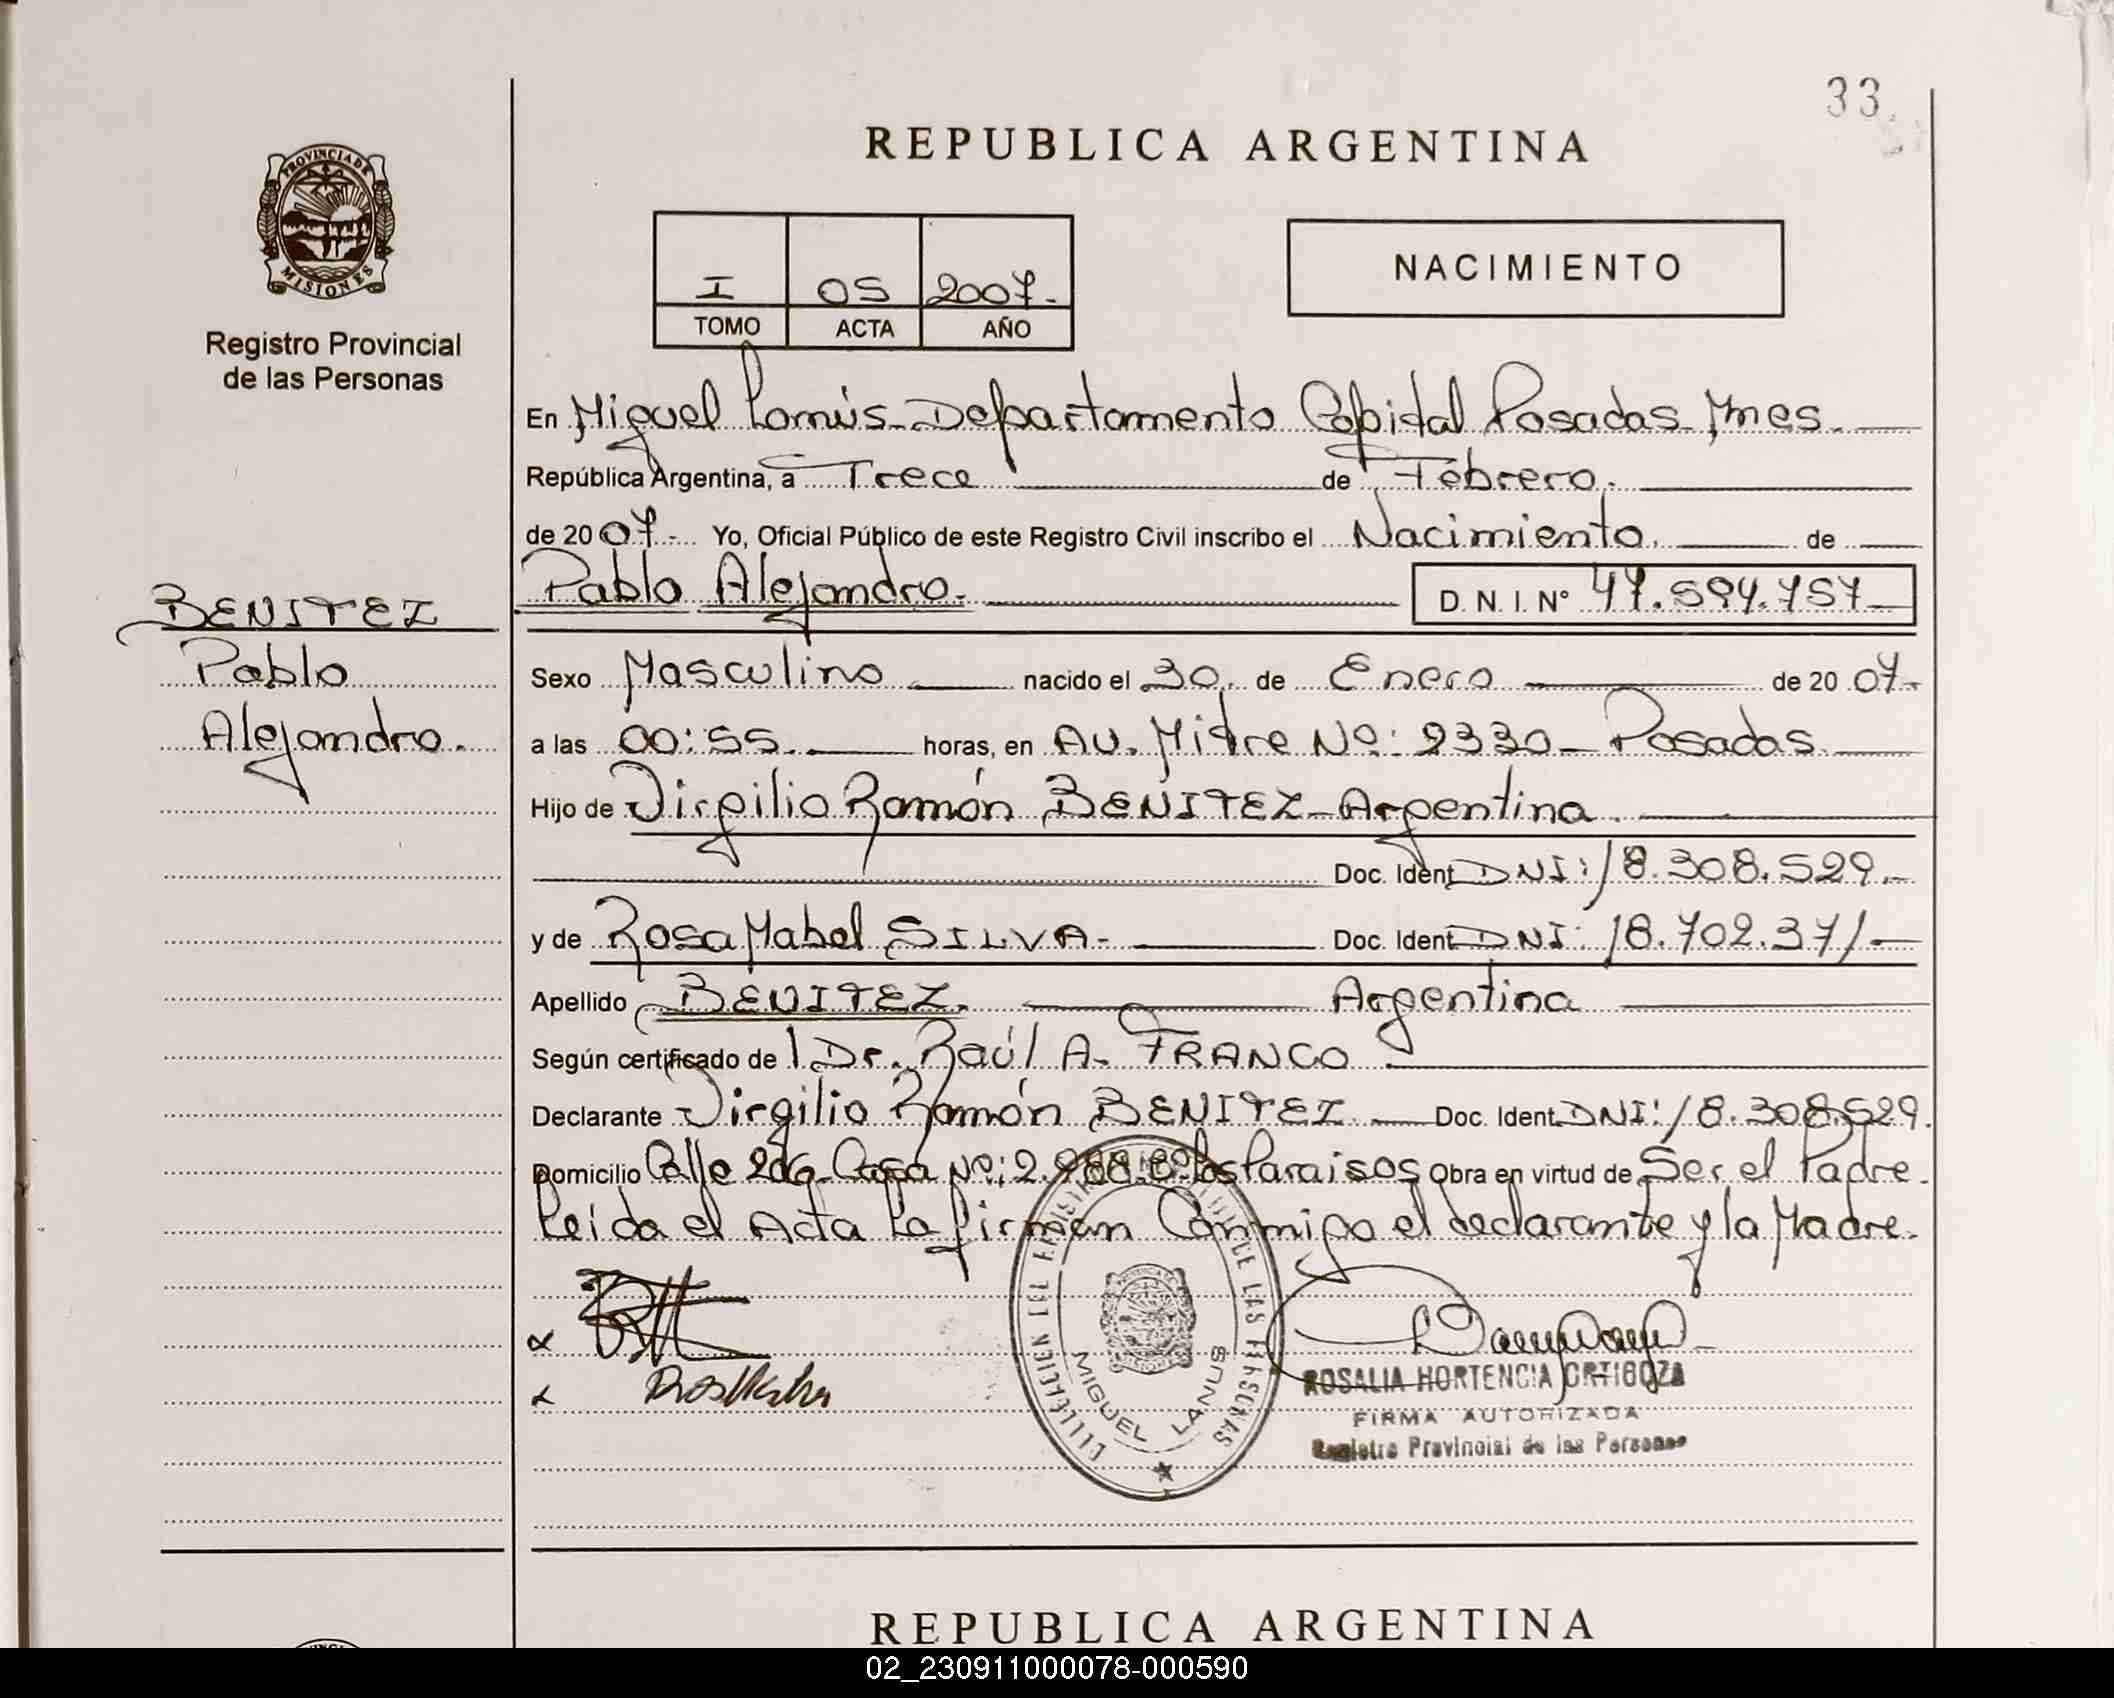 33
REPUBLICA ARGENTINA
PROVINCIA DE
MISIONES
Registro Provincial
de las Personas
I 05 2007.-
TOMO ACTA AÑO
NACIMIENTO
En Miguel Lanús - Departamento Capital Posadas Mnes.
República Argentina, a Trece de Febrero.
de 2007.- Yo, Oficial Público de este Registro Civil inscribo el Nacimiento. de
Pablo Alejandro. D. N. I. Nº 47.594.757
BENITEZ
Pablo
Alejandro.
Sexo Masculino nacido el 30. de Enero de 2007.-
a las 00:55. horas, en AV. Mitre Nº: 2330 - Posadas.
Hijo de Virgilio Ramón BENITEZ - Argentina.
Doc. Ident. DNI: 18.308.529.-
y de Rosa Mabel SILVA.- Doc. Ident. DNI: 18.702.371.-
Apellido BENITEZ. Argentina
Según certificado de l Dr. Raúl A. FRANCO
Declarante Virgilio Ramón BENITEZ. Doc. Ident. DNI: 18.308.529.
Domicilio Calle 206 Casa Nº: Los Paraisos Obra en virtud de Ser el Padre.
Leída el Acta La firman Conmigo el declarante y la Madre.
MIGUEL LANUS
ROSALIA HORTENCIA ORTIGOZA
FIRMA AUTORIZADA
Registro Provincial de las Personas
REPUBLICA ARGENTINA
02_230911000078-000590